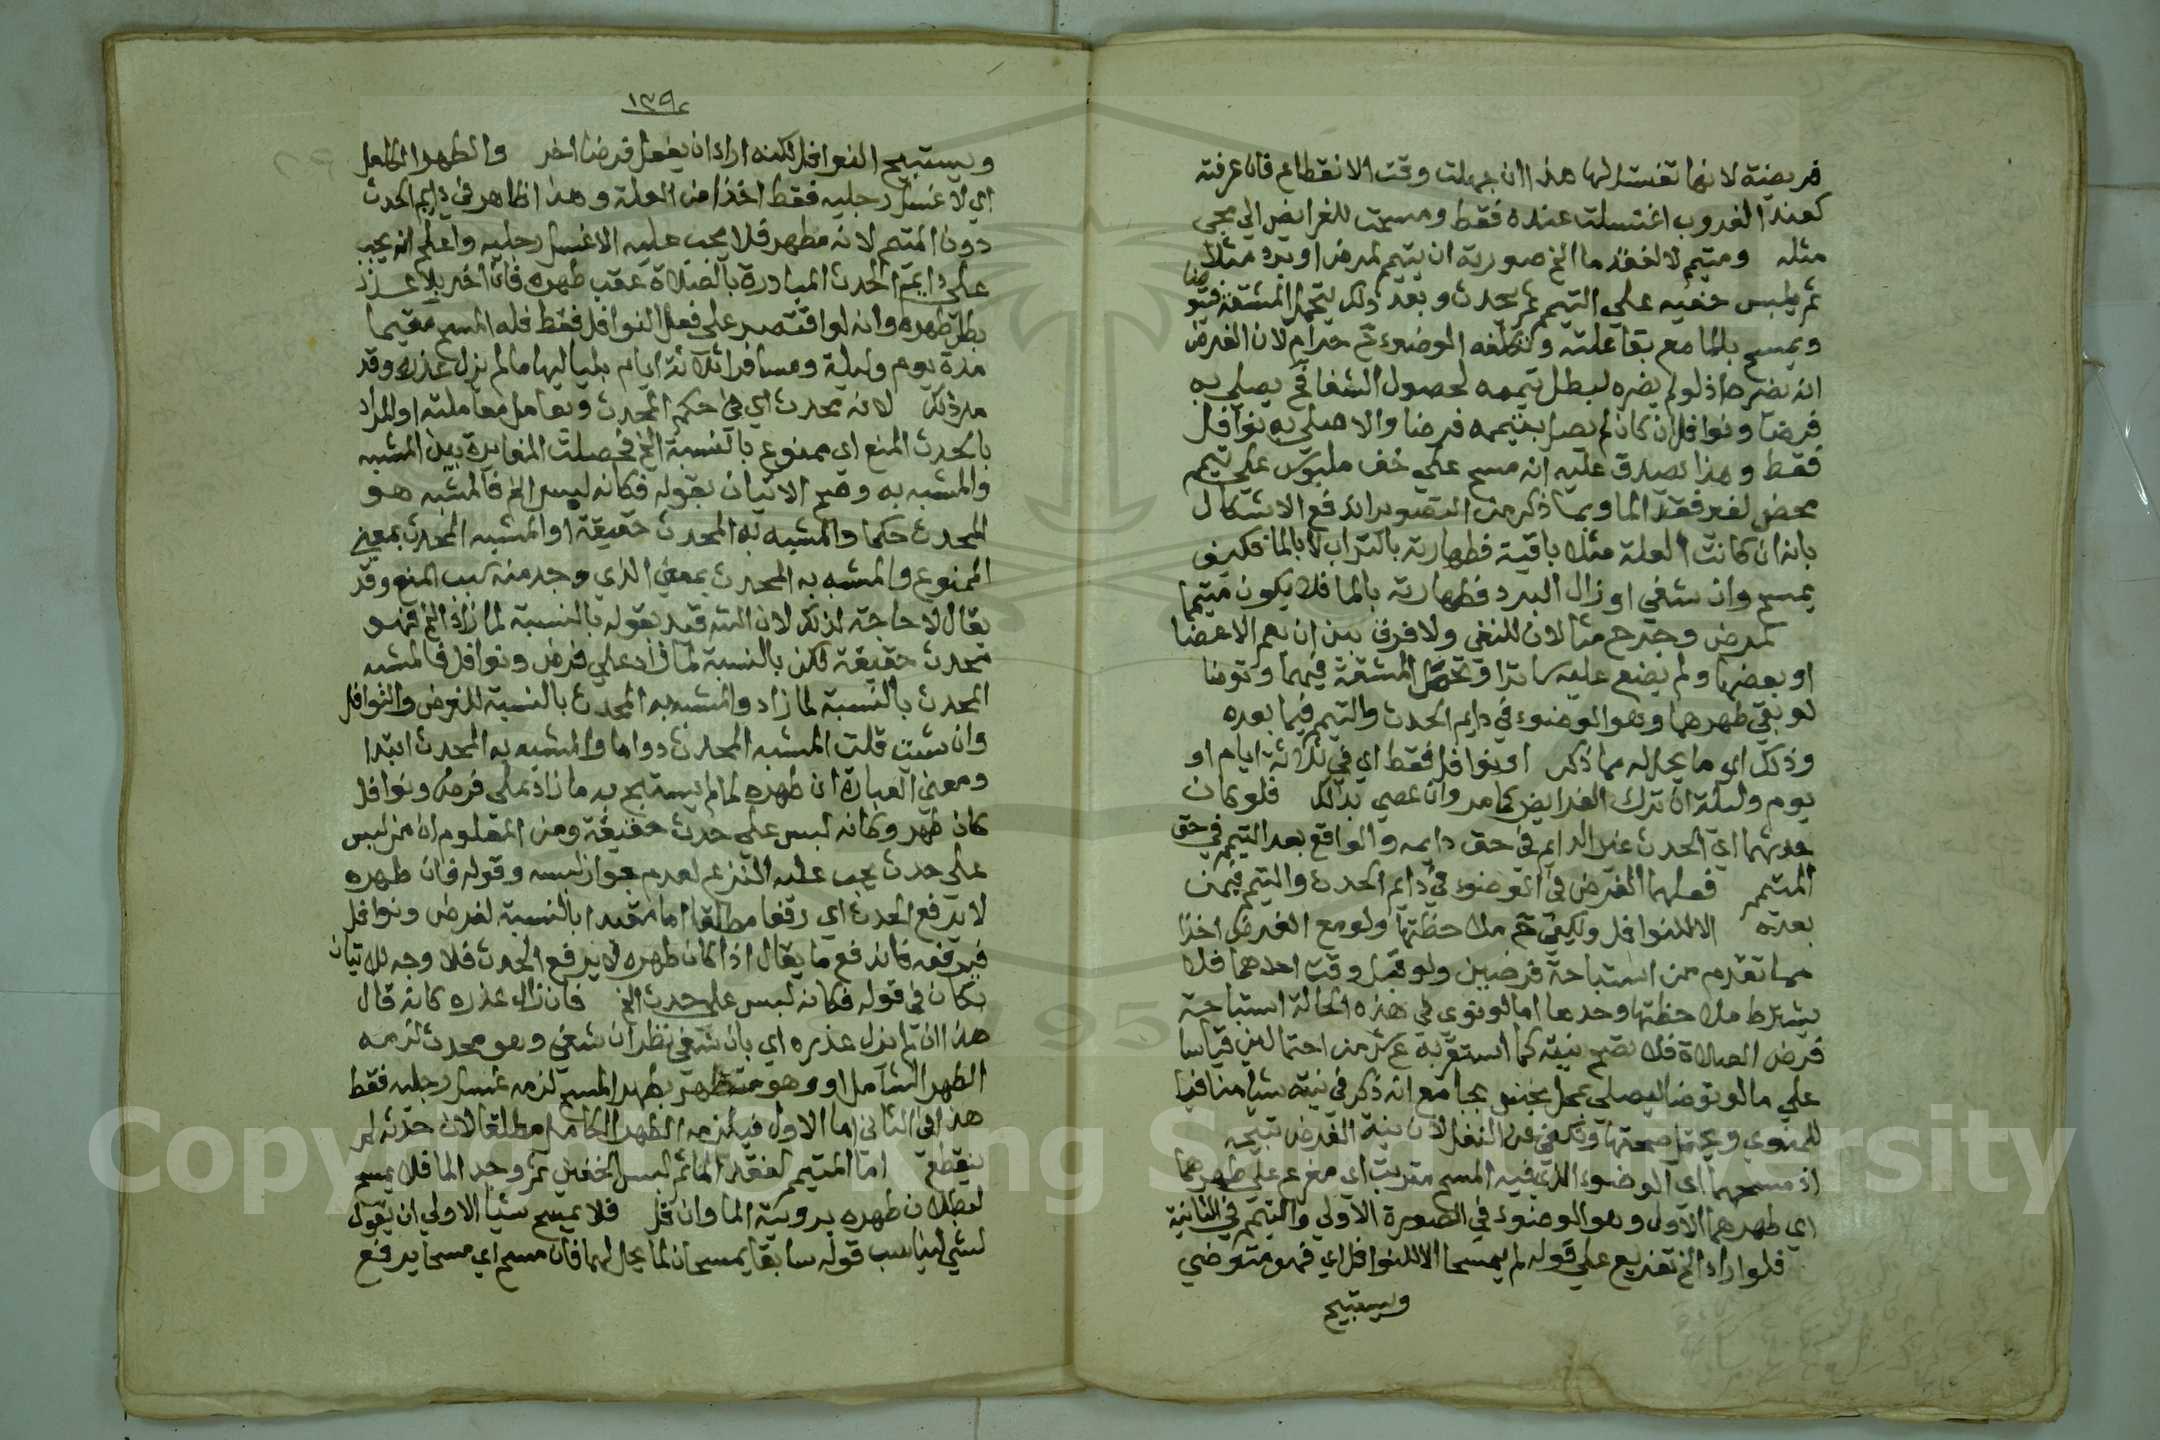 فريضة لانها تغتسل لها هذا ان جهلت وقت الانقطاع فان عرفته
كعند الغروب اغتسلت عنده فقط ومسحت للفرايض الي مجي
مثله ومتيمم لا لفقد ما الخ صورته ان يتيمم لمرض او برد مثلا
ثم يلبس خفيه علي التيمم ثم يحدث وبعد ذلك يتحمل المشقة فيتوضا
ويمسح بالما مع بقا علته وتكلفه الوضوء ح حرام لان الفرض
انه يضره اذ لو لم يضره لبطل تيممه لحصول الشفا ح يصلي به
فرضا ونوافل ان كان لم يصل بتيممه فرضا والا صلي به نوافل
فقط وهذا يصدق عليه انه مسح علي خف ملبوس علي تيمم
محض لغير فقد الما وبما ذكر من التصوير اندفع الاشكال
بانه ان كانت العلة مثلا باقية فطهارته بالتراب لا بالما فكيف
يمسح وان شفي او زال البرد فطهارته بالما فلا يكون متيمما
كمرض وجرح مثالان للنفي ولا فرق بين ان يعم الاعضا
او بعضها ولم يضع عليه ساترا وتحمل المشقة فيهما وتوضا
لو بقي طهرهما وهو الوضوء في دايم الحدث والتيمم فيما بعده
وذلك اي ما يحل له مما ذكر او نوافل فقط اي في ثلاثة ايام او
يوم وليلة ان ترك الفرايض كما مر وان عصي بذلك فلو كان
حدثهما اي الحدث غير الدايم في حق دايمه والواقع بعد التيمم في حق
المتيمم فعلهما الفرض في الوضوء في دايم الحدث والتيمم فيمن
بعده الا للنوافل ويكفي ح ملاحظتها ولو مع الفرض اخذا
مما تقدم من استباحة فرضين ولو قبل وقت احدهما فلا
يشترط ملاحظتها وحدها اما لو نوي في هذه الحالة استباحة
فرض الصلاة فلا تصح نيته كما استقربه ع ش من احتمالين قياسا
علي ما لو توضا ليصلي بمحل نجس بجامع انه ذكر في نيته شيا منافيا
للمنوي ويحتمل صحتها وتكفي عن النفل لان نية الفرض تبيحه
اذ مسحهما اي الوضوء الذي فيه المسح مترتب اي مفرع علي طهرهما
اي طهرهما الاول وهو الوضوء في الصورة الاولي والتيمم في الثانية
فلو اراد الخ تفريع علي قوله لم يمسحا الا للنوافل اي فهو متوضي
ويستبيح
١٣٩
ويستبيح النوافل لكنه اراد ان يفعل فرضا اخر والطهر الكامل
اي لا غسل رجليه فقط اخذا من العلة وهذا ظاهر في دايم الحدث
دون المتيمم لانه مطهر فلا يجب عليه الا غسل رجليه واعلم انه يجب
علي دايم الحدث المبادرة بالصلاة عقب طهره فان اخر بلا عذر
بطل طهره وانه لو اقتصر علي فعل النوافل فقط فله المسح مقيما
مدة يوم وليلة ومسافرا ثلاثة ايام بلياليها ما لم يزل عذره وقد
مر ذلك لانه محدث اي في حكم المحدث ويعامل معاملته او المراد
بالحدث المنع اي ممنوع بالنسبة الخ فحصلت المغايرة بين المشبه
والمشبه به وصح الاتيان بقوله فكانه لبس الخ فالمشبه هو
المحدث حكما والمشبه به المحدث حقيقة او المشبه المحدث بمعني
الممنوع والمشبه به المحدث بمعني الذي وجد منه سبب المنع وقد
يقال لا حاجة لذلك لان الش قيد بقوله بالنسبة لما زاد الخ فهو
محدث حقيقة لكن بالنسبة لما زاد علي فرض ونوافل فالمشبه
المحدث بالنسبة لما زاد والمشبه به المحدث بالنسبة للفرض والنوافل
وان شيت قلت المشبه المحدث دواما والمشبه به المحدث ابتدا
ومعني العبارة ان طهره لما لم يستبح به ما زاد علي فرض ونوافل
كان طهر وكانه لبس علي حدث حقيقة ومن المعلوم ان من لبس
علي حدث يجب عليه النزع لعدم جواز لبسه وقوله فان طهره
لا يرفع الحدث اي رفعا مطلقا اما مقيدا بالنسبة لفرض ونوافل
فيرفعه فاندفع ما يقال اذا كان طهره لا يرفع الحدث فلا وجه للاتيان
بكان في قوله فكانه لبس علي حدث الخ فان زال عذره كانه قال
هذا ان لم يزل عذره اي بان شفي نظر ان شفي وهو محدث لزمه
الطهر الكامل او وهو متطهر بطهر المسح لزمه غسل رجليه فقط
هذا في الثاني اما الاول فيلزمه الطهر الكامل مطلقا لان حدثه لم
ينقطع اما المتيمم لفقد الما ثم لبس الخفين ثم وجد الما فلا يمسح
لبطلان طهره بروية الما وان قل فلا يمسح شيا الاولي ان يقول
لشي ليناسب قوله سابقا يمسحان لما يحل لهما فان مسح اي مسحا يرفع